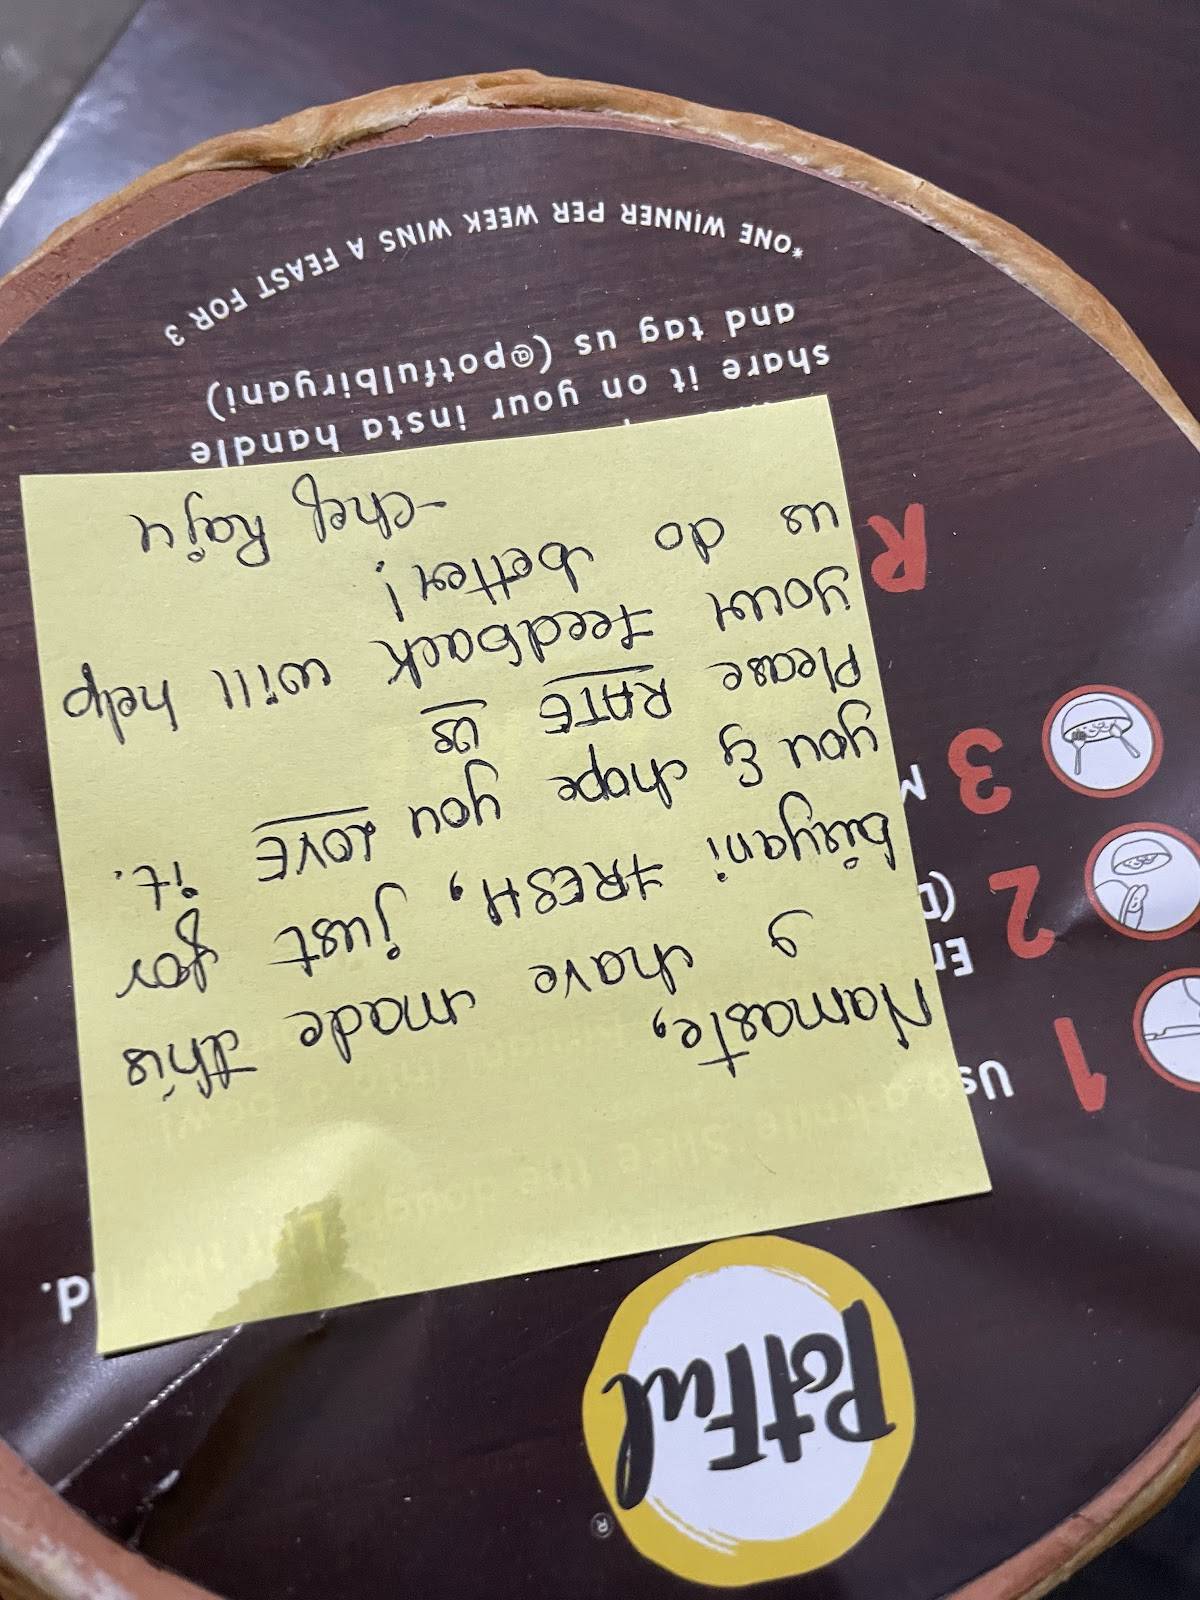 PotFul
®
Namaste,
I have made this
biryani FRESH, just for
you & hope you LOVE it.
Please RATE us
your feedback will help
us do better!
-chef Raju
d.
1
Use a knife. Slice the dough
2
3
R
share it on your insta handle
and tag us (@potfulbiryani)
*ONE WINNER PER WEEK WINS A FEAST FOR 3